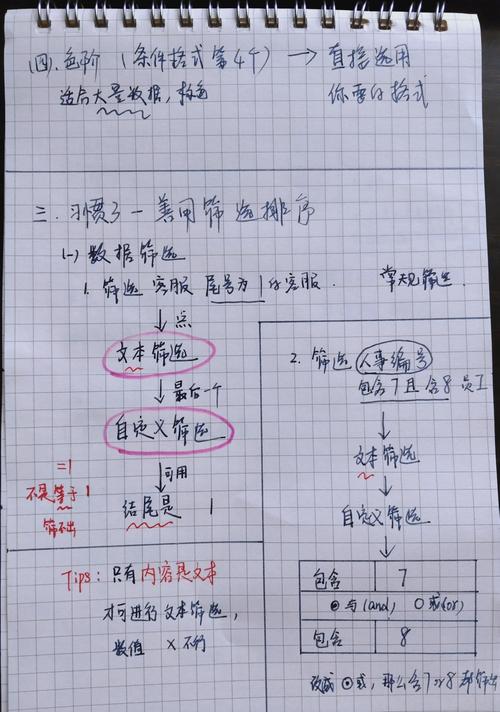 (四). 色阶 (条件格式第4个) → 直接选用
适合大量数据, 标色 你要的格式
三. 习惯3 - 善用筛选排序
(一) 数据筛选
1. 筛选 客服 尾号为1的客服. 常规筛选.
↓ 点
文本筛选
↓ 最后一个
自定义筛选
↓ 可用
结尾是 1
=1
不是等于1
筛不出
Tips: 只有内容是文本
才可进行文本筛选,
数值 × 不行
2. 筛选 人事编号
包含7且含8员工
↓
文本筛选
↓
自定义筛选
↓
包含 7
⊙与(and) ○或(or)
包含 8
改成⊙或, 那么含7or8都筛出